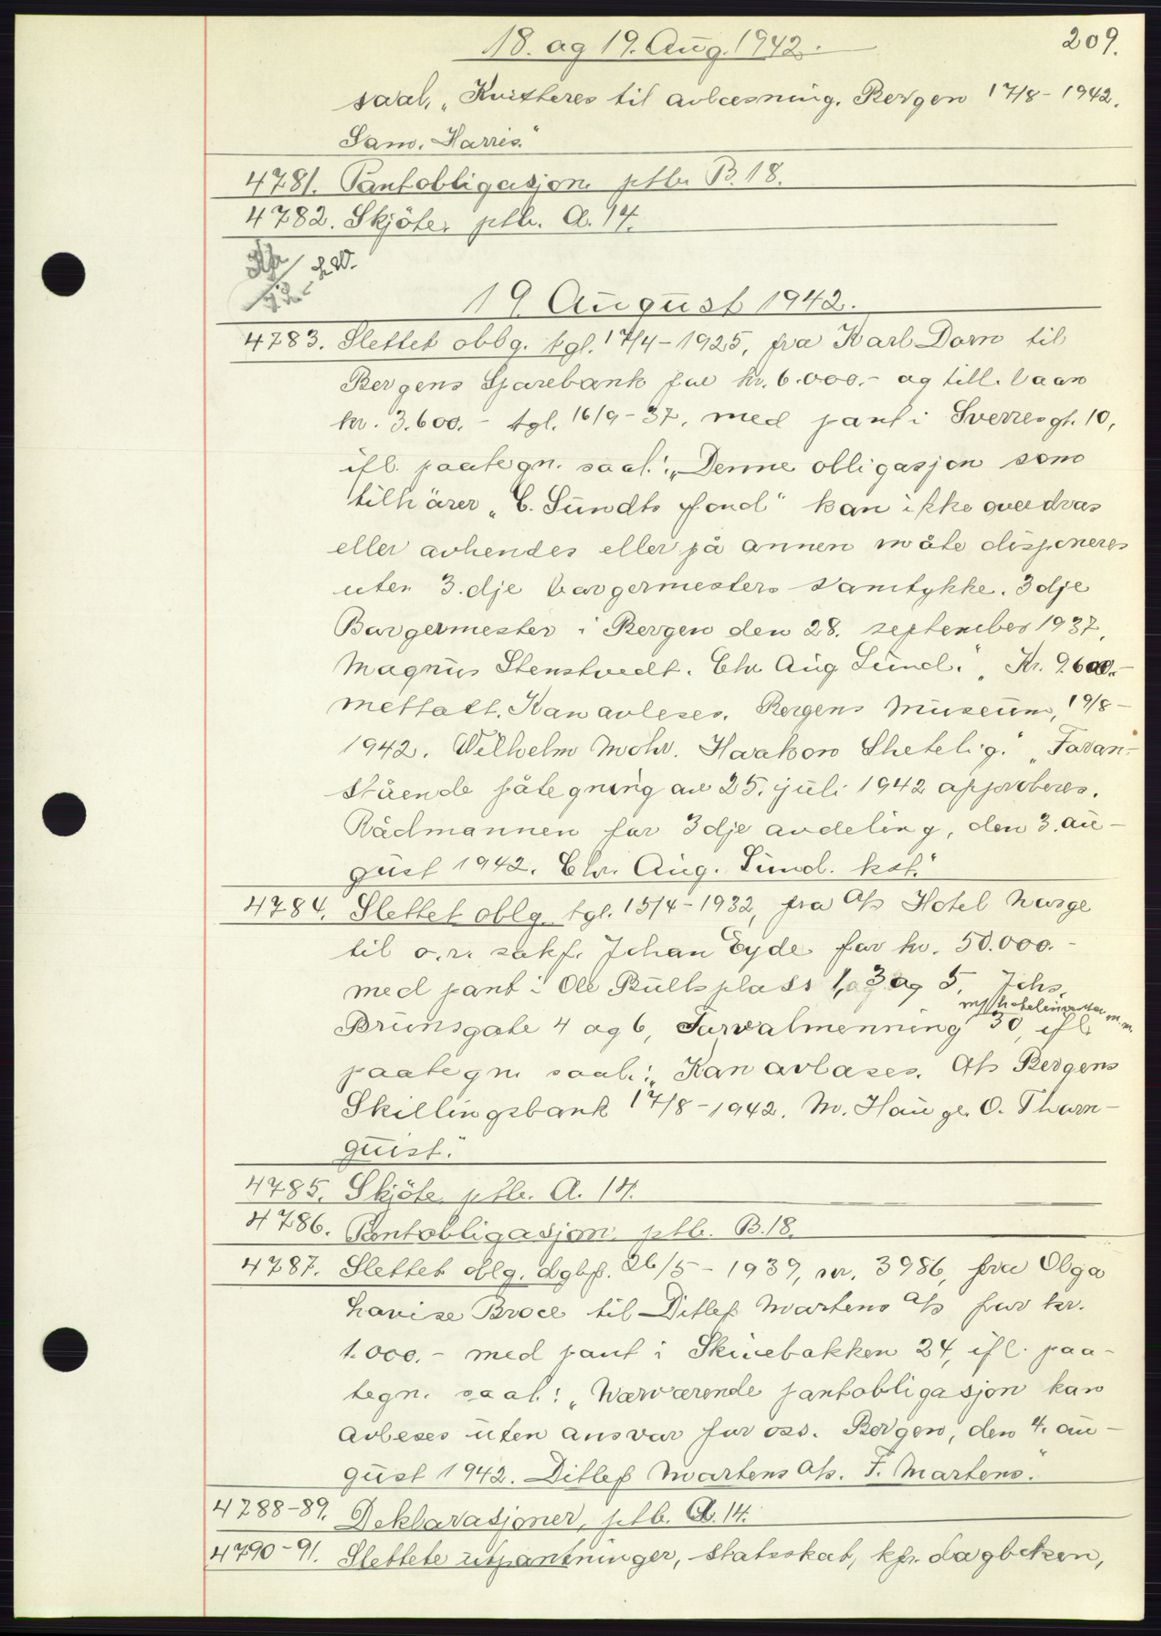 18. og 19. Aug. 1942. 209.
saal. „Kvitteres til avlæsning. Bergen 17/8-1942.
Sam. Harris."
4781. Pantobligasjon ptb. B. 18.
4782. Skjöte, ptb. A. 14.
19. August 1942.
4783. Slettet oblg. tgl. 17/4-1925, fra Karl Dorn til
Bergens Sparebank for kr. 6.000.- og till. laan
kr. 3.600.- tgl. 16/9-37, med pant i Sverresgt. 10,
ifl. paategn. saal.: „Denne obligasjon som
tilhörer „C. Sundts fond" kan ikke overdras
eller avhendes eller på annen måte disponeres
uten 3.dje borgermesters samtykke. 3dje
Borgermester i Bergen den 28. september 1937,
Magnus Stenstvedt. Chr. Aug Sund." „Kr. 9600.-
mottatt. Kan avleses. Bergens Museum, 19/8-
1942. Wilhelm Mohr. Haakon Shetelig." „Foran-
stående påtegning av 25. juli 1942 approberes.
Rådmannen for 3dje avdeling, den 3. au-
gust 1942. Chr. Aug. Sund. kst."
4784. Slettet oblg. tgl. 15/4-1932, fra A/s Hotel Norge
til o.r. sakf. Johan Eyde for kr. 50.000.-
med pant i Ole Bulls plass 1, 3 og 5, Johs.
m/ hotelinventar m.m.
Brunsgate 4 og 6, Torvalmenning 30, ifl.
paategn. saal.: „Kan avlæses. A/s Bergens
Skillingsbank 17/8-1942. M. Hauge. O. Thorn-
quist."
4785. Skjöte ptb. A. 14.
4786. Pantobligasjon ptb. B. 18.
4787. Slettet oblg. dgbf. 26/5-1939, nr. 3986, fra Olga
Lovise Broce til Ditlef Martens A/s for kr.
1.000.- med pant i Skivebakken 24, ifl. paa-
tegn. saal.: „Nærværende pantobligasjon kan
avleses uten ansvar for oss. Bergen, den 4. au-
gust 1942. Ditlef Martens A/s. F. Martens."
4788-89. Deklarasjoner, ptb. A. 14.
4790-91. Slettete utpantninger, statsskat, kfr. dagboken,